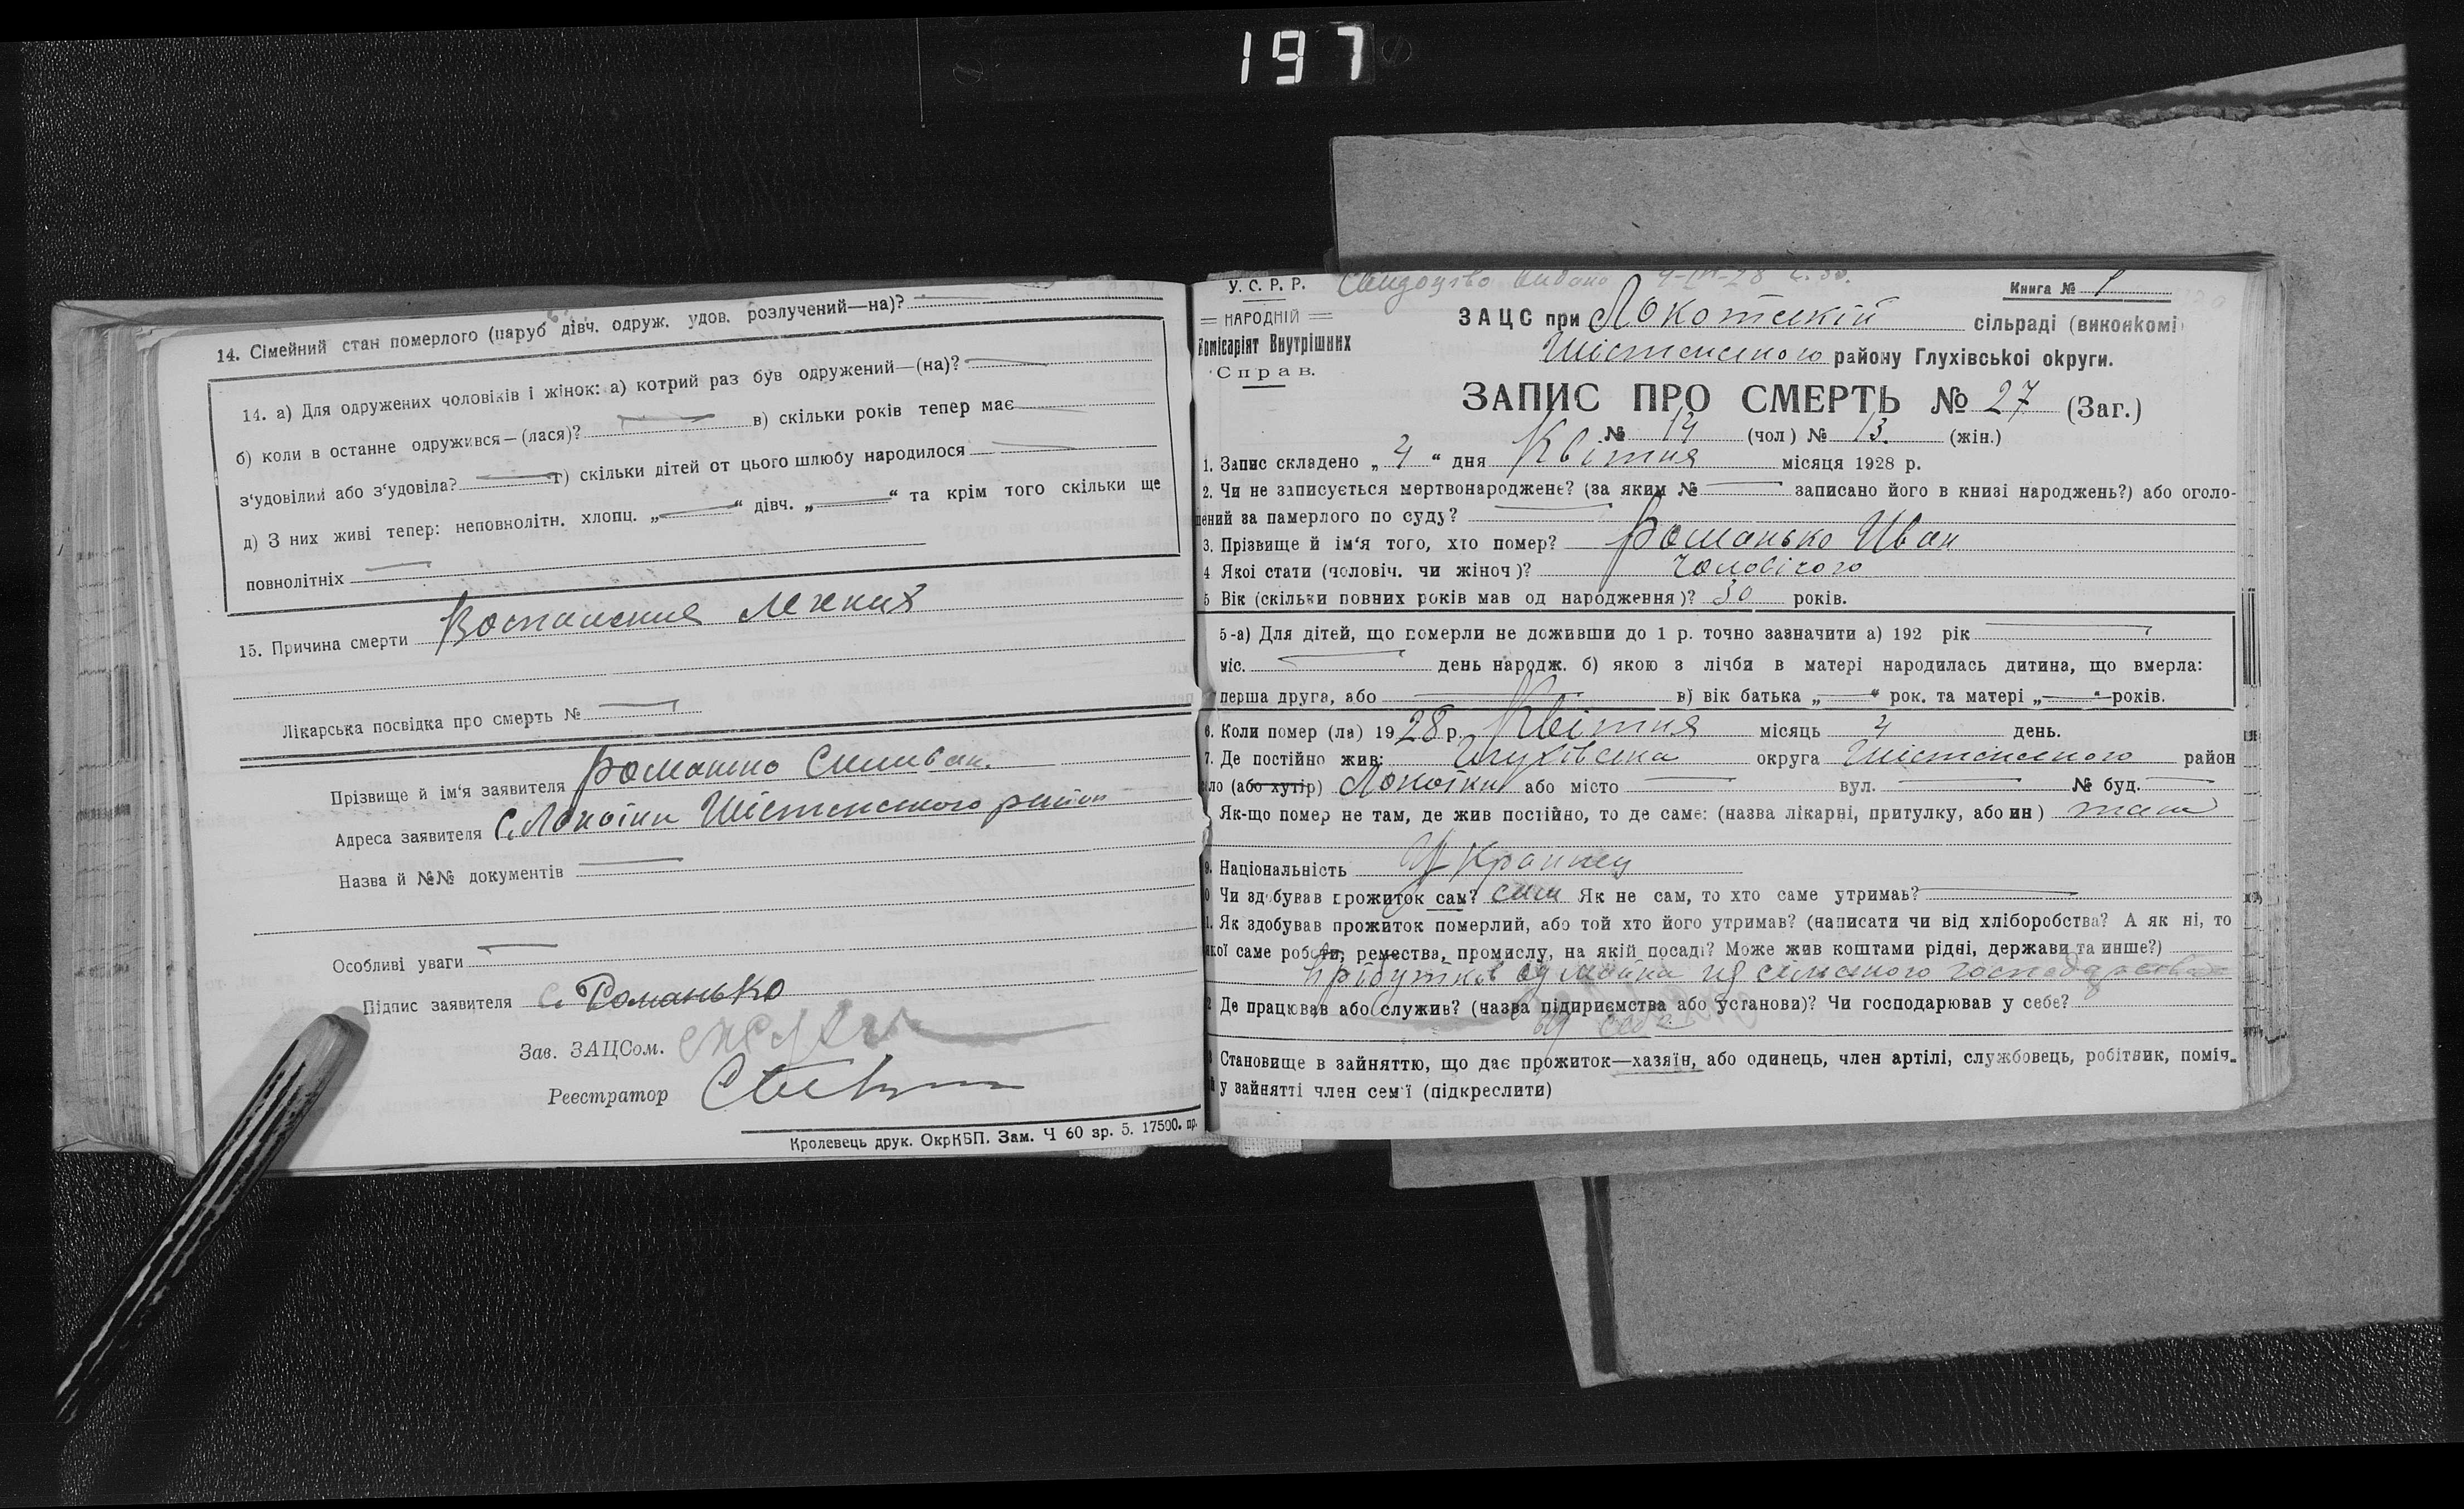 197
14. Сімейний стан померлого (паруб дівч. одруж. удов. розлучений—на)?
14. а) Для одружених чоловіків і жінок: а) котрий раз був одружений—(на)?
б) коли в останне одружився—(лася)? в) скільки років тепер має
з'удовілий або з'удовіла? г) скільки дітей от цього шлюбу народилося
д) З них живі тепер: неповнолітн. хлопц. „ — “ дівч. „ — “ та крім того скільки ще
повнолітніх
15. Причина смерти Воспаления Легких
Лікарська посвідка про смерть №
Прізвище й ім'я заявителя Романько
Адреса заявителя с. Локотки
Назва й №№ документів
Особливі уваги
Підпис заявителя С. Романько
Зав. ЗАЦСом.
Реєстратор
Кролевець друк. ОкрКБП. Зам. Ч 60 зр. 5. 17500. пр.
У. С. Р. Р. Свидоцтво видано
Книга № 1
НАРОДНІЙ
Комісаріят Внутрішних
Справ.
ЗАЦС при Локотській сільраді (виконкомі
району Глухівської округи.
ЗАПИС ПРО СМЕРТЬ № 27 (Заг.)
№ 14 (чол) № 13. (жін.)
1. Запис складено „ 4 “ дня Квітня місяця 1928 р.
2. Чи не записується мертвонароджене? (за яким № — записано його в книзі народжень?) або оголо-
шений за памерлого по суду?
3. Прізвище й ім'я того, хто помер? Романько Иван
4 Якої стати (чоловіч. чи жіноч)? Чоловічого
5 Вік (скільки повних років мав од народження)? 30 років.
5-а) Для дітей, що померли не доживши до 1 р. точно зазначити а) 192 рік
міс. день народж. б) якою з лічби в матері народилась дитина, що вмерла:
перша друга, або в) вік батька „ — “ рок. та матері „ — “ років.
6. Коли помер (ла) 1928 р. Квітня місяць 4 день.
7. Де постійно жив: Глухівська округа район
ло (або хутір) Локотки або місто вул. № буд.
Як-що помер не там, де жив постійно, то де саме: (назва лікарні, притулку, або ин) там
9. Національність Украинец
0 Чи здобував прожиток сам? сам Як не сам, то хто саме утримав?
1. Як здобував прожиток померлий, або той хто його утримав? (написати чи від хліборобства? А як ні, то
якої саме роботи, ремества, промислу, на якій посаді? Може жив коштами рідні, держави та инше?)
сільского господарства
2 Де працював або служив? (назва підприємства або установи)? Чи господарював у себе?
у себе
3 Становище в зайняттю, що дає прожиток—хазяїн, або одинець, член артілі, службовець, робітник, поміч-
й у зайнятті член сем'ї (підкреслити)